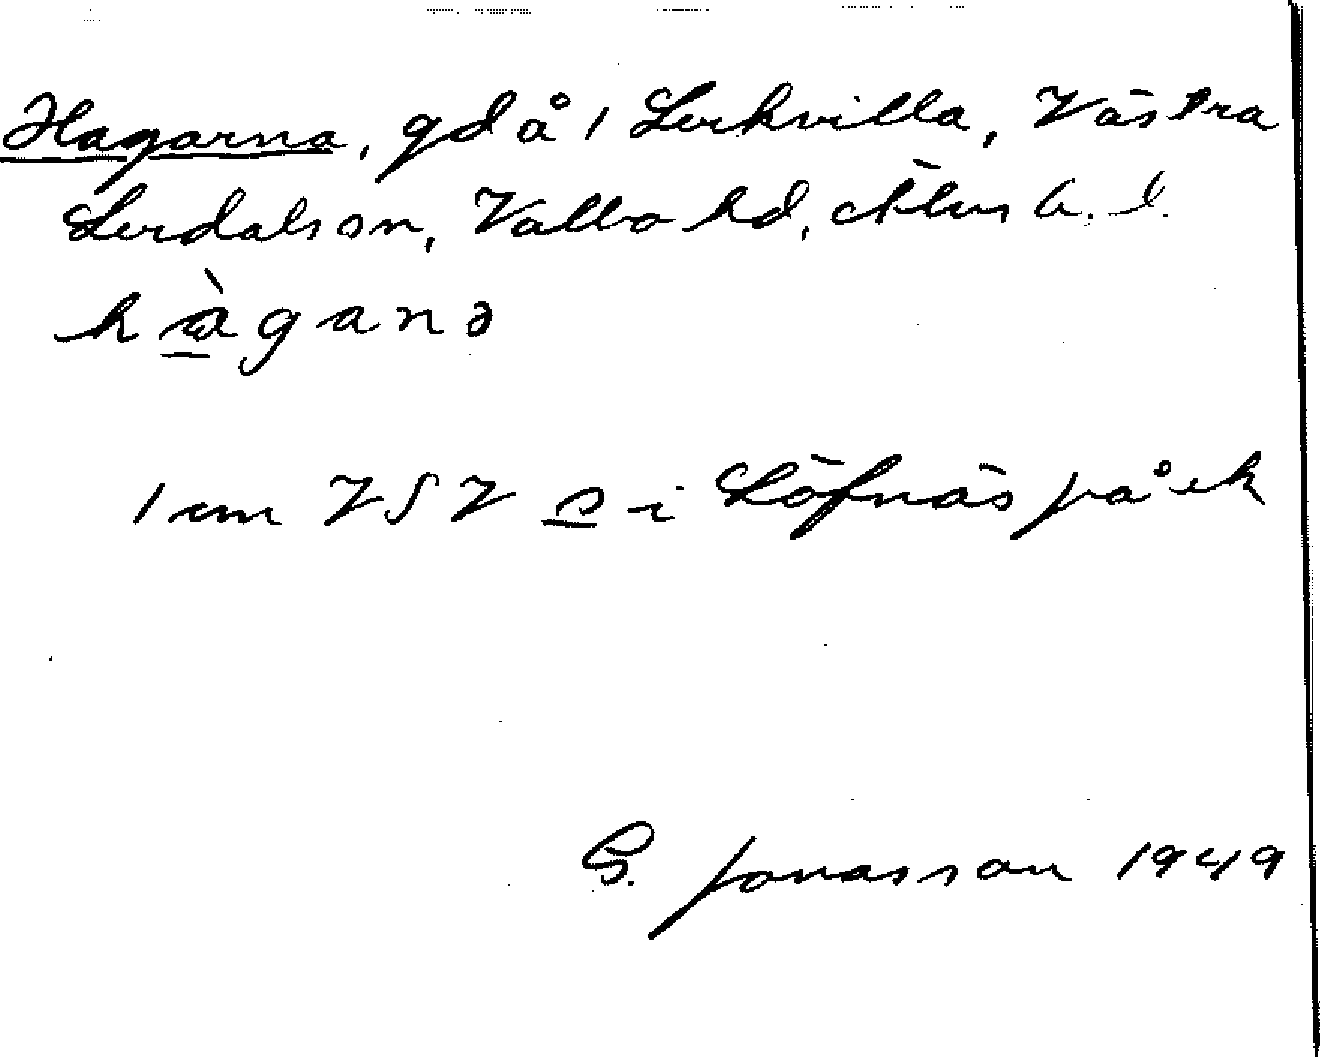 Hagarna, gd å 1 Lerkvilla, Västra
Lerdalson, Valbo hd, Älvsb. l.
hàganə
1 cm VSV o i Löfnäs på ek
G. Jonasson 1949